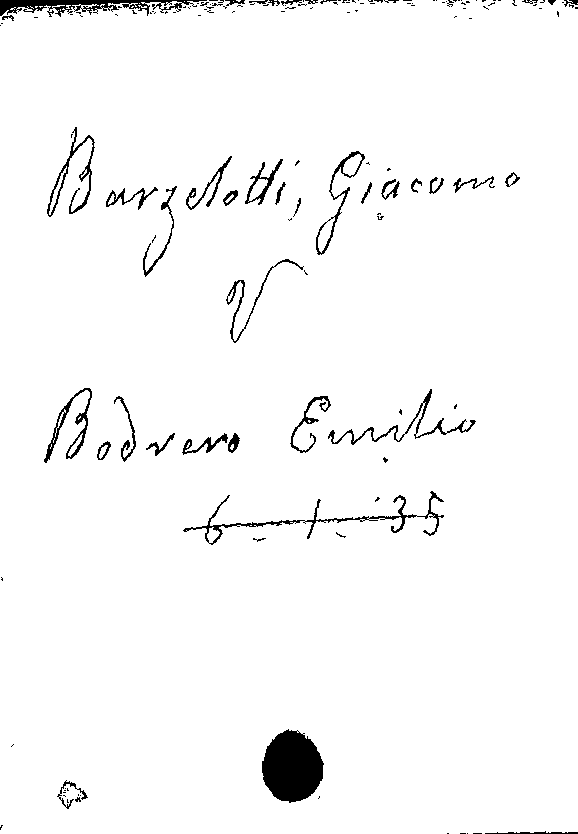 Barzelotti, Giacomo
V
Bodrero Emilio
6.1.35